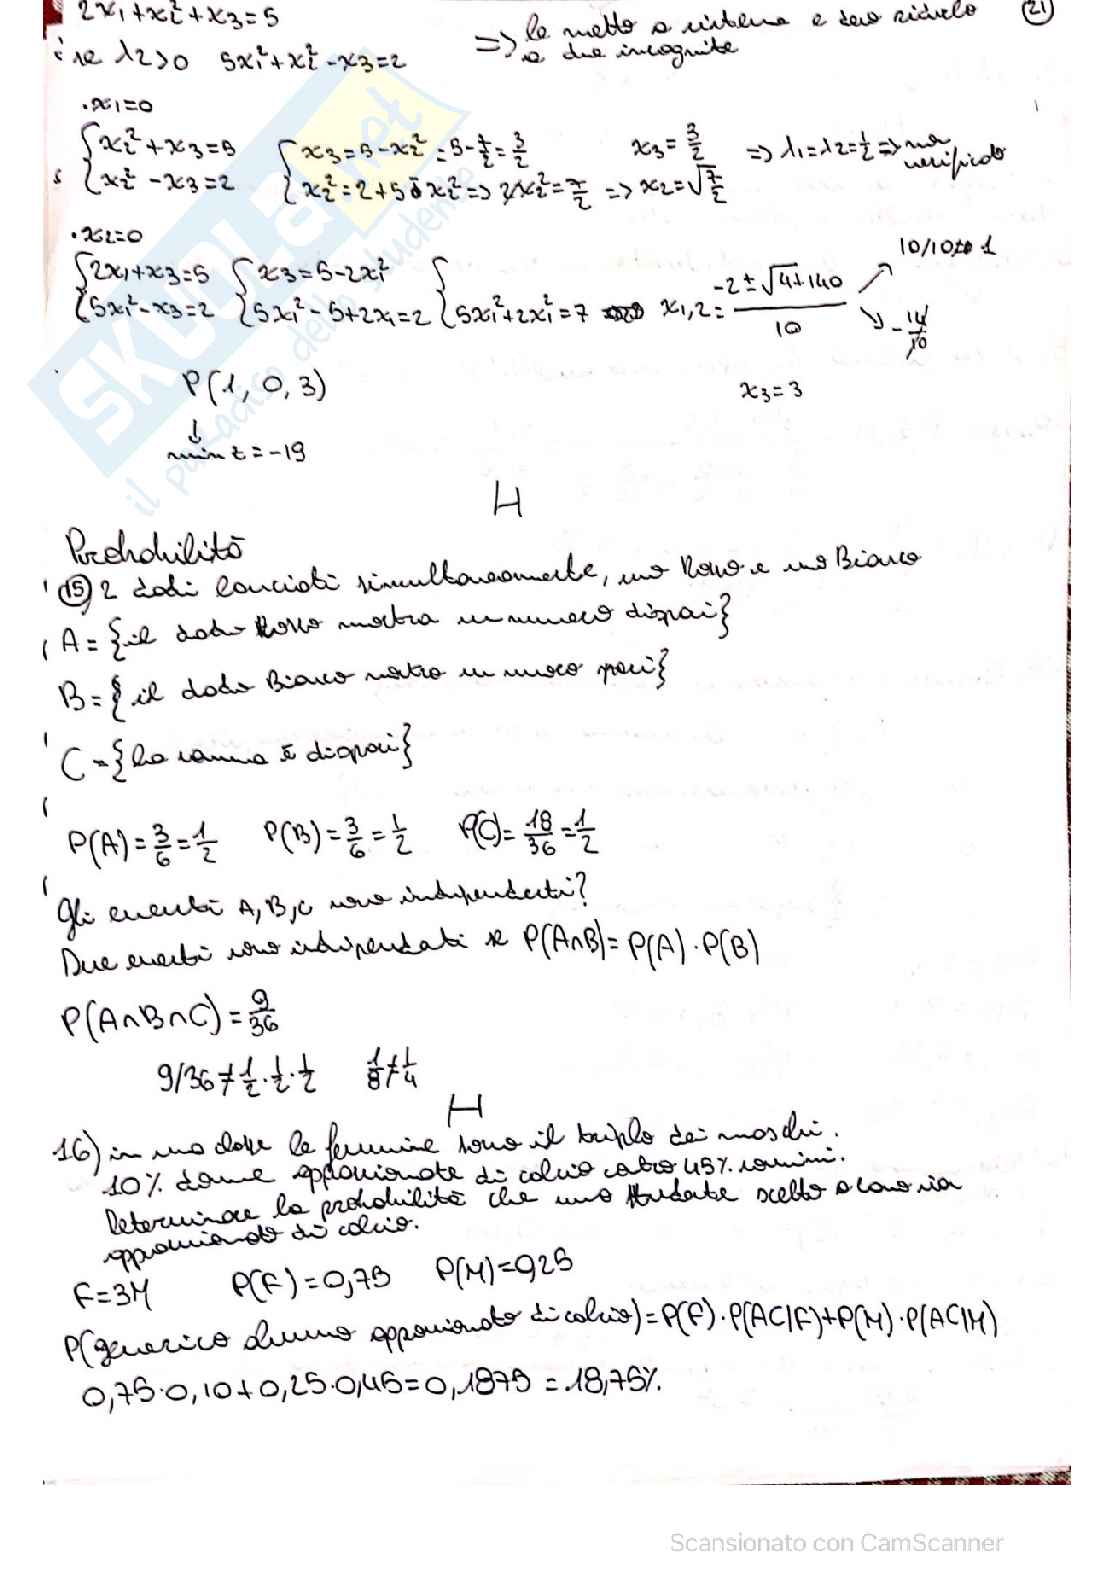 2x₁+x₂²+x₃=5
(21)
se λ2>0 5x₁²+x₂²-x₃=2
=> le metto a sistema e devo ridurlo
a due incognite
.x₁=0
{x₂²+x₃=5 {x₃=5-x₂²=5-7/2=3/2 x₃=3/2 => λ₁=λ₂=1/2 => non verificato
{x₂²-x₃=2 {x₂²=2+5-x₂² => 2x₂²=7/2 => x₂=√7/2
.x₂=0
{2x₁+x₃=5 {x₃=5-2x₁² {
{5x₁²-x₃=2 {5x₁²-5+2x₁=2 {5x₁²+2x₁²=7 x₁,₂= -2±√4+140 / 10
10/10 1
-14/10
P(1, 0, 3)
x₃=3
↓
min z=-19
H
Probabilità
(15) 2 dadi lanciati simultaneamente, uno Rosso e uno Bianco
A={il dado Rosso mostra un numero dispari}
B={il dado Bianco mostra un numero pari}
C={la somma è dispari}
P(A)=3/6=1/2 P(B)=3/6=1/2 P(C)=18/36=1/2
Gli eventi A,B,C sono indipendenti?
Due eventi sono indipendenti se P(A∩B)=P(A)·P(B)
P(A∩B∩C)=9/36
9/36≠1/2·1/2·1/2 1/8≠1/4
H
16) in una classe le femmine sono il triplo dei maschi.
10% donne appassionate di calcio contro 45% uomini.
Determinare la probabilità che uno studente scelto a caso sia
appassionato di calcio.
F=3M P(F)=0,75 P(M)=0,25
P(generico alunno appassionato di calcio)=P(F)·P(AC|F)+P(M)·P(AC|M)
0,75·0,10+0,25·0,45=0,1875=18,75%.
SKUOLA.net
il paradiso dello studente
Scansionato con CamScanner